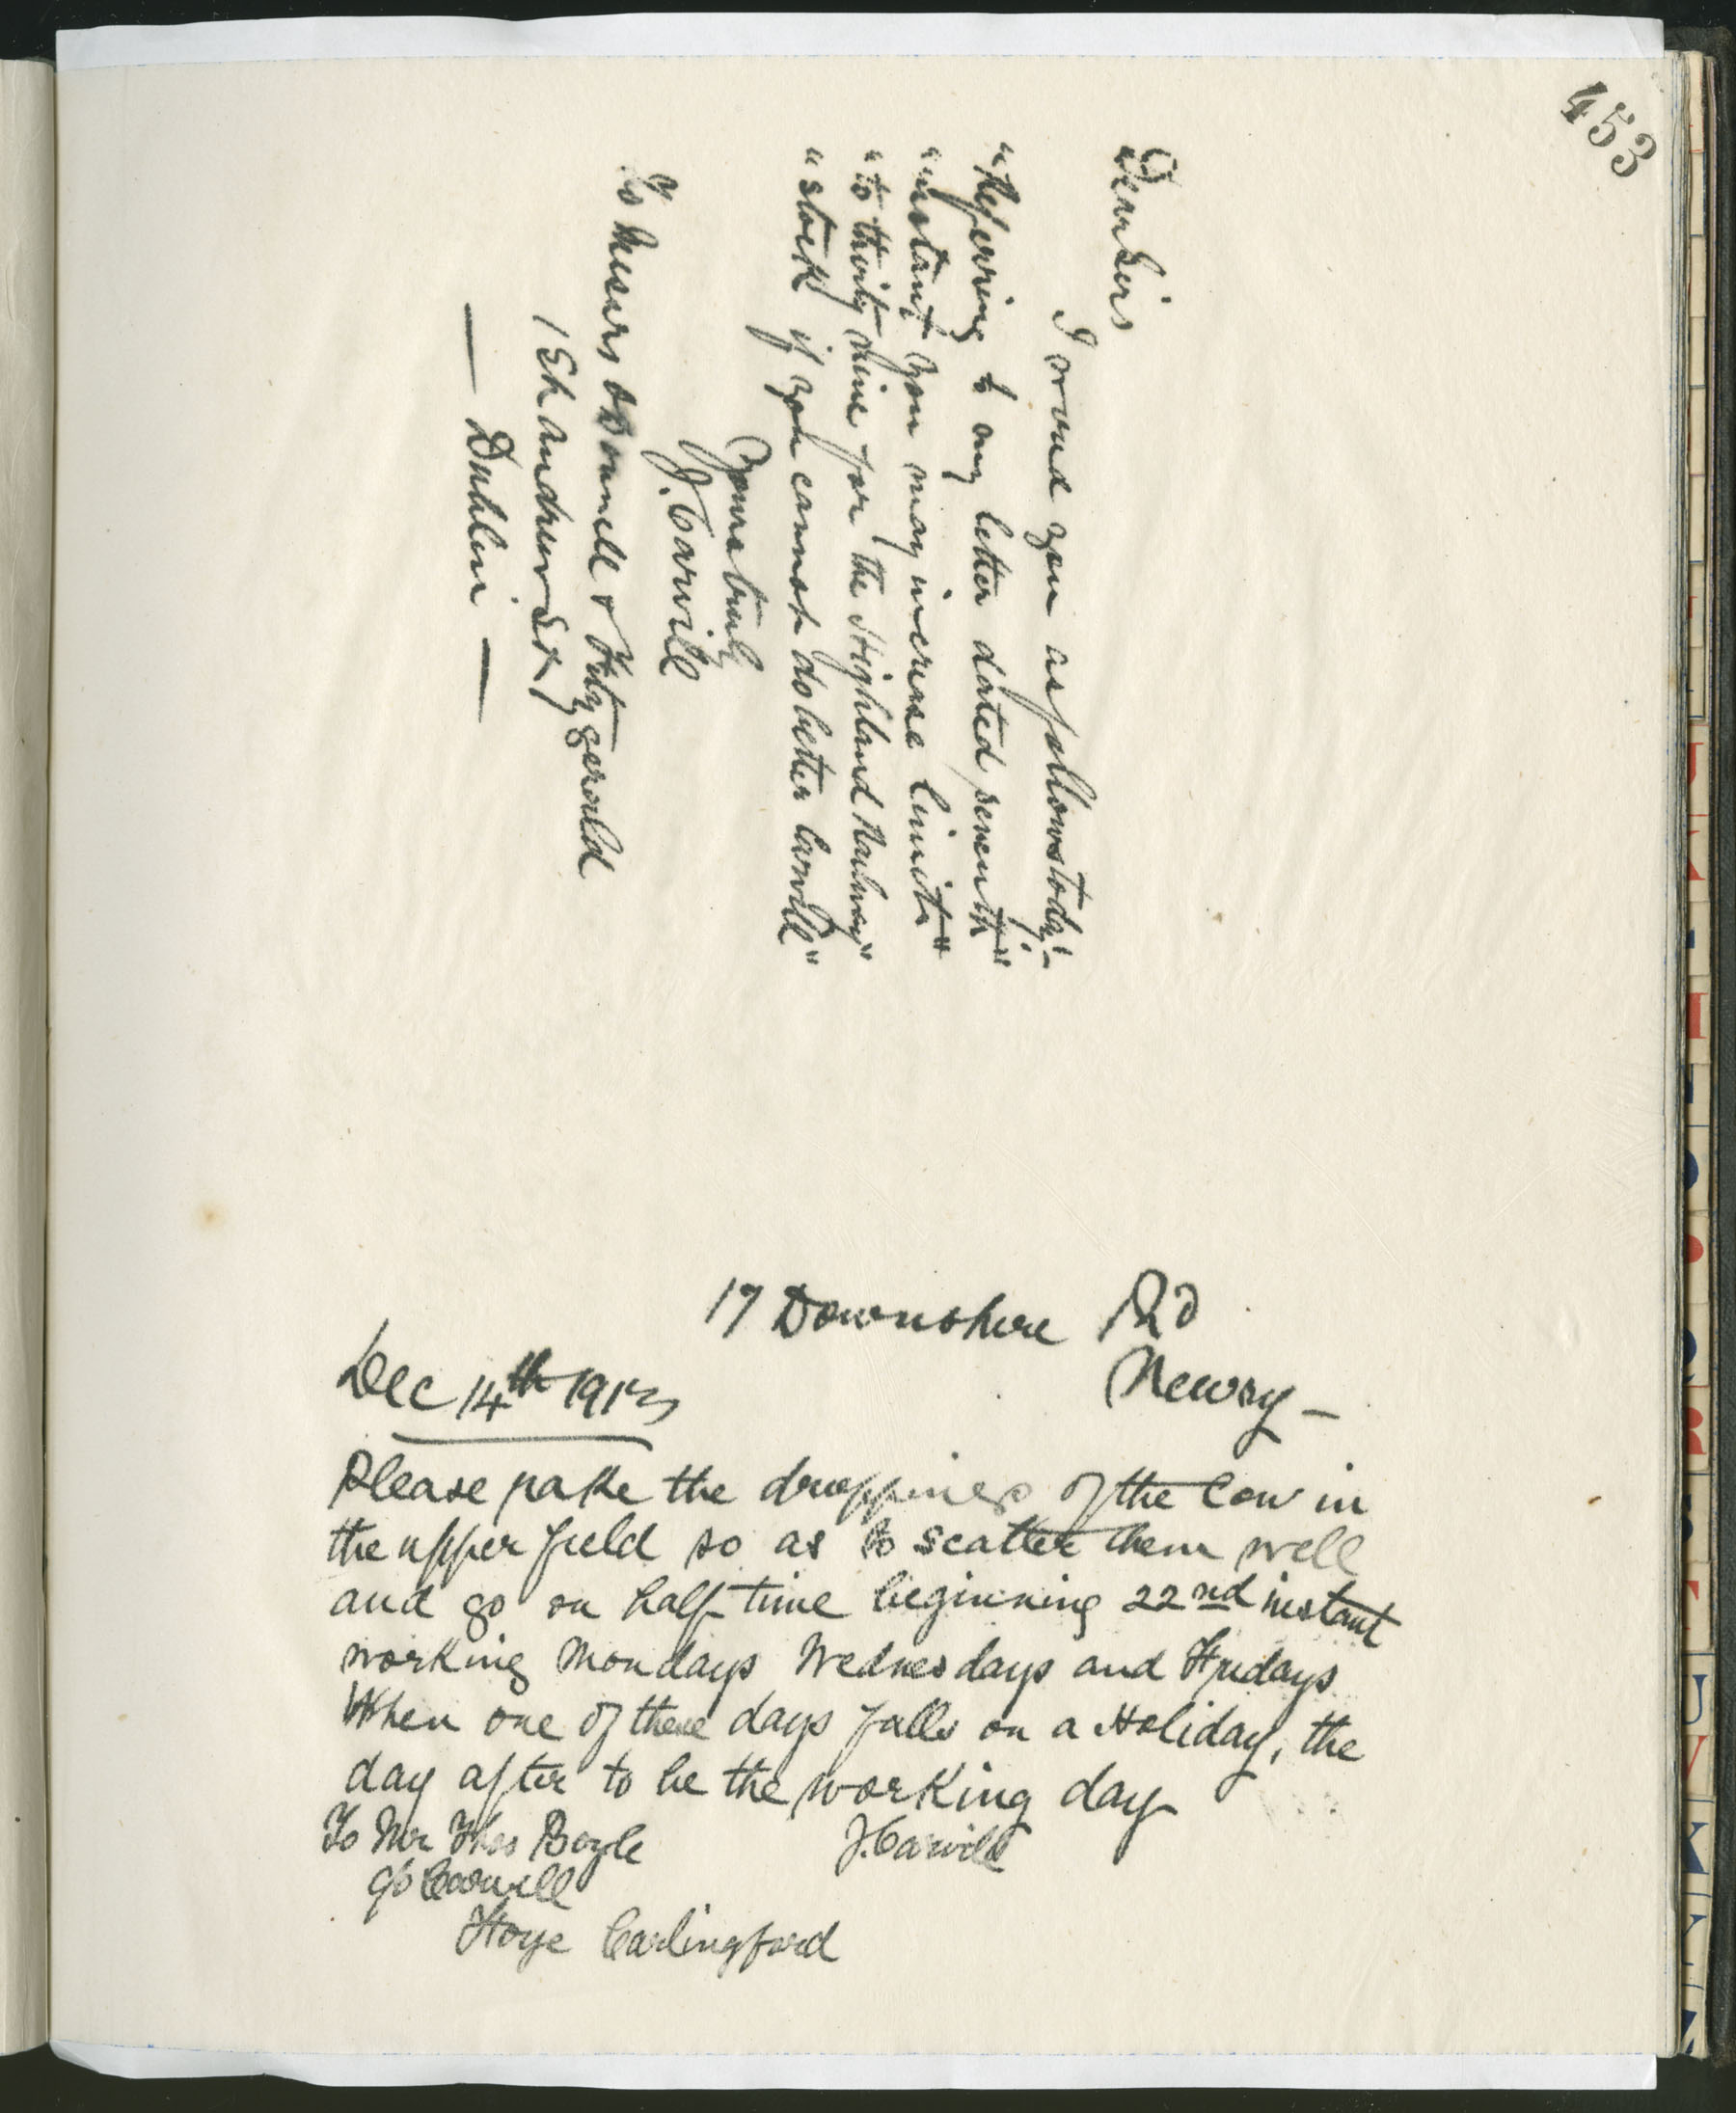 453
Dear Sirs
I wired you as follows today:-
"Referring to my letter dated seventh"
"instant you may increase limit"
"to thirty nine for the Highland Railway"
"stock if you cannot do better Carvill"
Yours truly
J. Carvill
To Messrs O'Donnell & Fitzgerald
1 St Andrew St
Dublin
17 Downshire Rd
Newry -
Dec 14th
Please rake the droppings of the Cow in
the upper field so as to scatter them well
and go on half time beginning 22nd instant
working Mondays Wednesdays and Fridays
When one of these days falls on a Holiday, the
day after to be the working day
J. Carvill
To Mr Thos Boyle
c/o Carvill
Carlingford